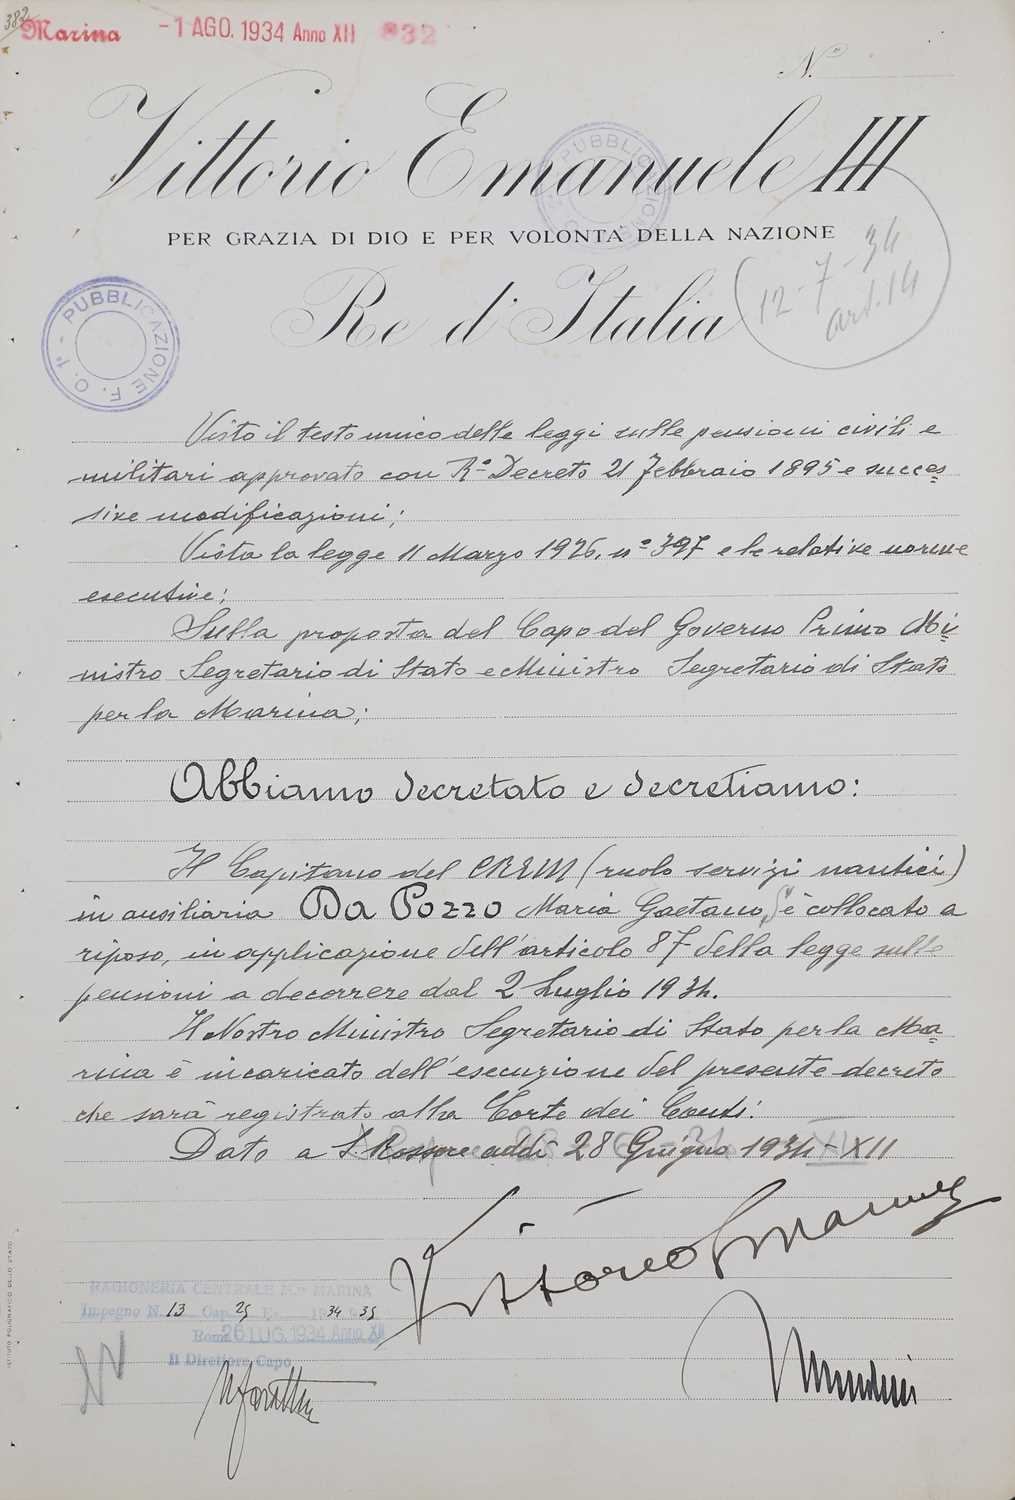 382
Marina -1 AGO. 1934 Anno XII 832
N.º
Vittorio Emanuele III
PER GRAZIA DI DIO E PER VOLONTÀ DELLA NAZIONE
Re d'Italia
12-7-34
art. 14
PUBBLICAZIONE F. O. 1ª
PUBBLICAZIONE
Visto il testo unico delle leggi sulle pensioni civili e
militari approvato con Rº Decreto 21 Febbraio 1895 e succes=
sive modificazioni;
Vista la legge 11 Marzo 1926. nº 397 e le relative norme
esecutive;
Sulla proposta del Capo del Governo Primo Mi=
nistro Segretario di Stato e Ministro Segretario di Stato
per la Marina;
Abbiamo decretato e decretiamo:
Il Capitano del CREM (ruolo servizi nautici)
in ausiliaria Da Pozzo Maria Gaetano, è collocato a
riposo, in applicazione dell'articolo 87 della legge sulle
pensioni a decorrere dal 2 Luglio 1934.
Il Nostro Ministro Segretario di Stato per la Ma=
rina è incaricato dell'esecuzione del presente decreto
che sarà registrato alla Corte dei Conti.
Dato a S. Rossore addì 28 Giugno 1934-XII
Vittorio Emanuele
RAGIONERIA CENTRALE M.º MARINA
Impegno N. 13 Cap. 25 E. 1934-35
Roma 26 LUG. 1934 Anno XII
Il Direttore Capo
Mussolini
ISTITUTO POLIGRAFICO DELLO STATO